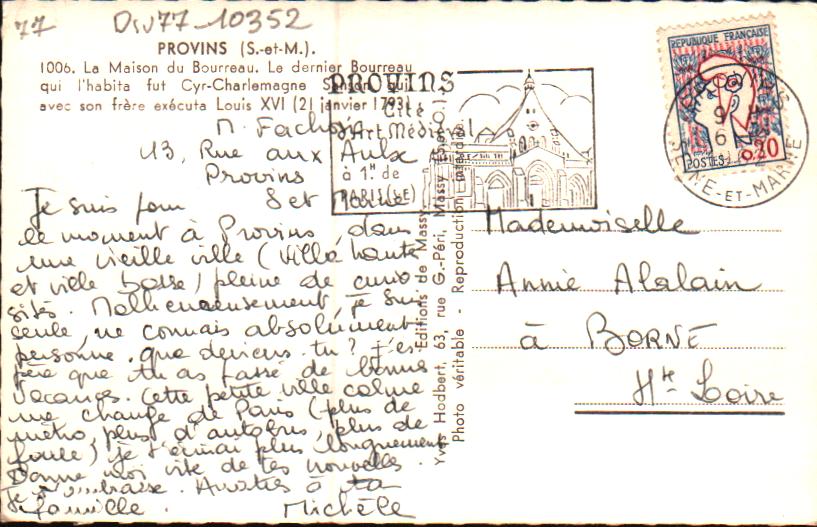 77 Div77-10352
PROVINS (S.-et-M.).
1006. La Maison du Bourreau. Le dernier Bourreau
qui l'habita fut Cyr-Charlemagne Sanson qui
avec son frère exécuta Louis XVI (21 janvier 1793).
13, Rue aux Aulx
Provins
S et Marne
Je suis pour
le moment à Provins, dans
une vieille ville (Ville haute
et ville basse) pleine de curio
sités. Malheureusement, je suis
seule, ne connais absolument
personne. que deviens-tu? j'es-
père que tu as passé de bonnes
vacances. Cette petite ville calme
me change de Paris (plus de
métro, plus d'autobus, plus de
foule) je t'écrirai plus longuement
Donne moi vite de tes nouvelles.
Je t'embrasse. Amitiés à ta
famille. Michèle
Editions de Massy
Yves Hodbert, 63, rue G.-Péri, Massy (S.-&-O.)
Photo véritable - Reproduction interdite
PROVINS
Cité
d'Art Médiéval
à 1H de
PARIS (SE)
REPUBLIQUE FRANÇAISE
POSTES 0,20
SEINE-ET-MARNE
Mademoiselle
Annie Alalain
à BORNE
Hte Loire